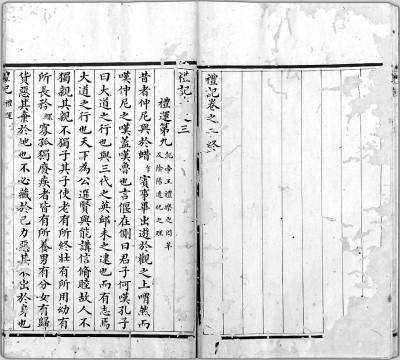 禮記卷之二終
禮記 之三
禮運第九 記帝王禮樂之因革
及陰陽造化之理
昔者仲尼與於蜡賓事畢出遊於觀之上喟然而
嘆仲尼之嘆蓋嘆魯也言偃在側曰君子何嘆孔子
曰大道之行也與三代之英丘未之逮也而有志焉
大道之行也天下為公選賢與能講信脩睦故人不
獨親其親不獨子其子使老有所終壯有所用幼有
所長矜 寡孤獨廢疾者皆有所養男有分女有歸
貨惡其棄於地也不必藏於己力惡其不出於身也
禮記 禮運